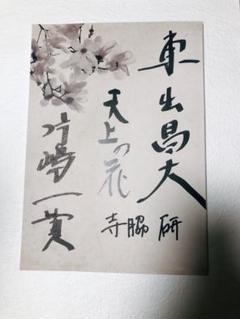 東出昌大
天上の花
寺脇 研
片嶋一貴